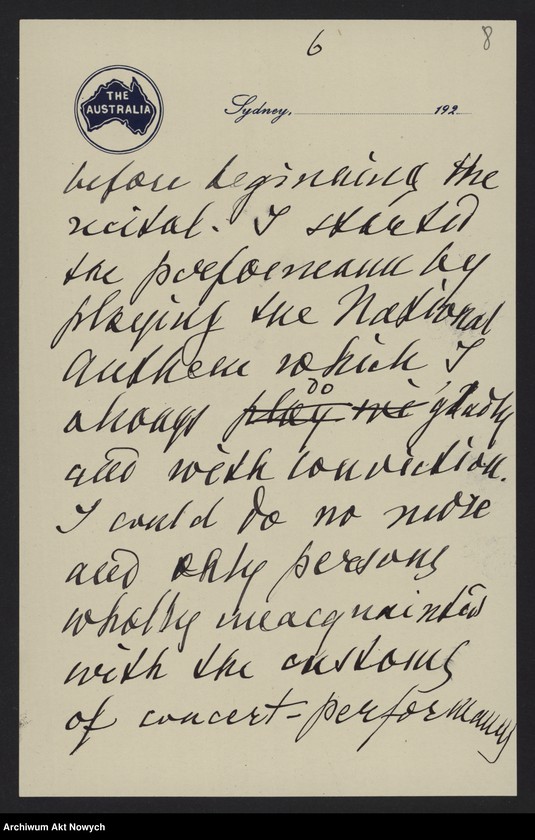 6
8
THE
AUSTRALIA
Sydney, 192
before beginning the
recital. I started
the performance by
playing the National
Anthem which I
always play wi do gladly
and with conviction.
I could do no more
and only persons
wholly unacquainted
with the customs
of concert-performances
Archiwum Akt Nowych